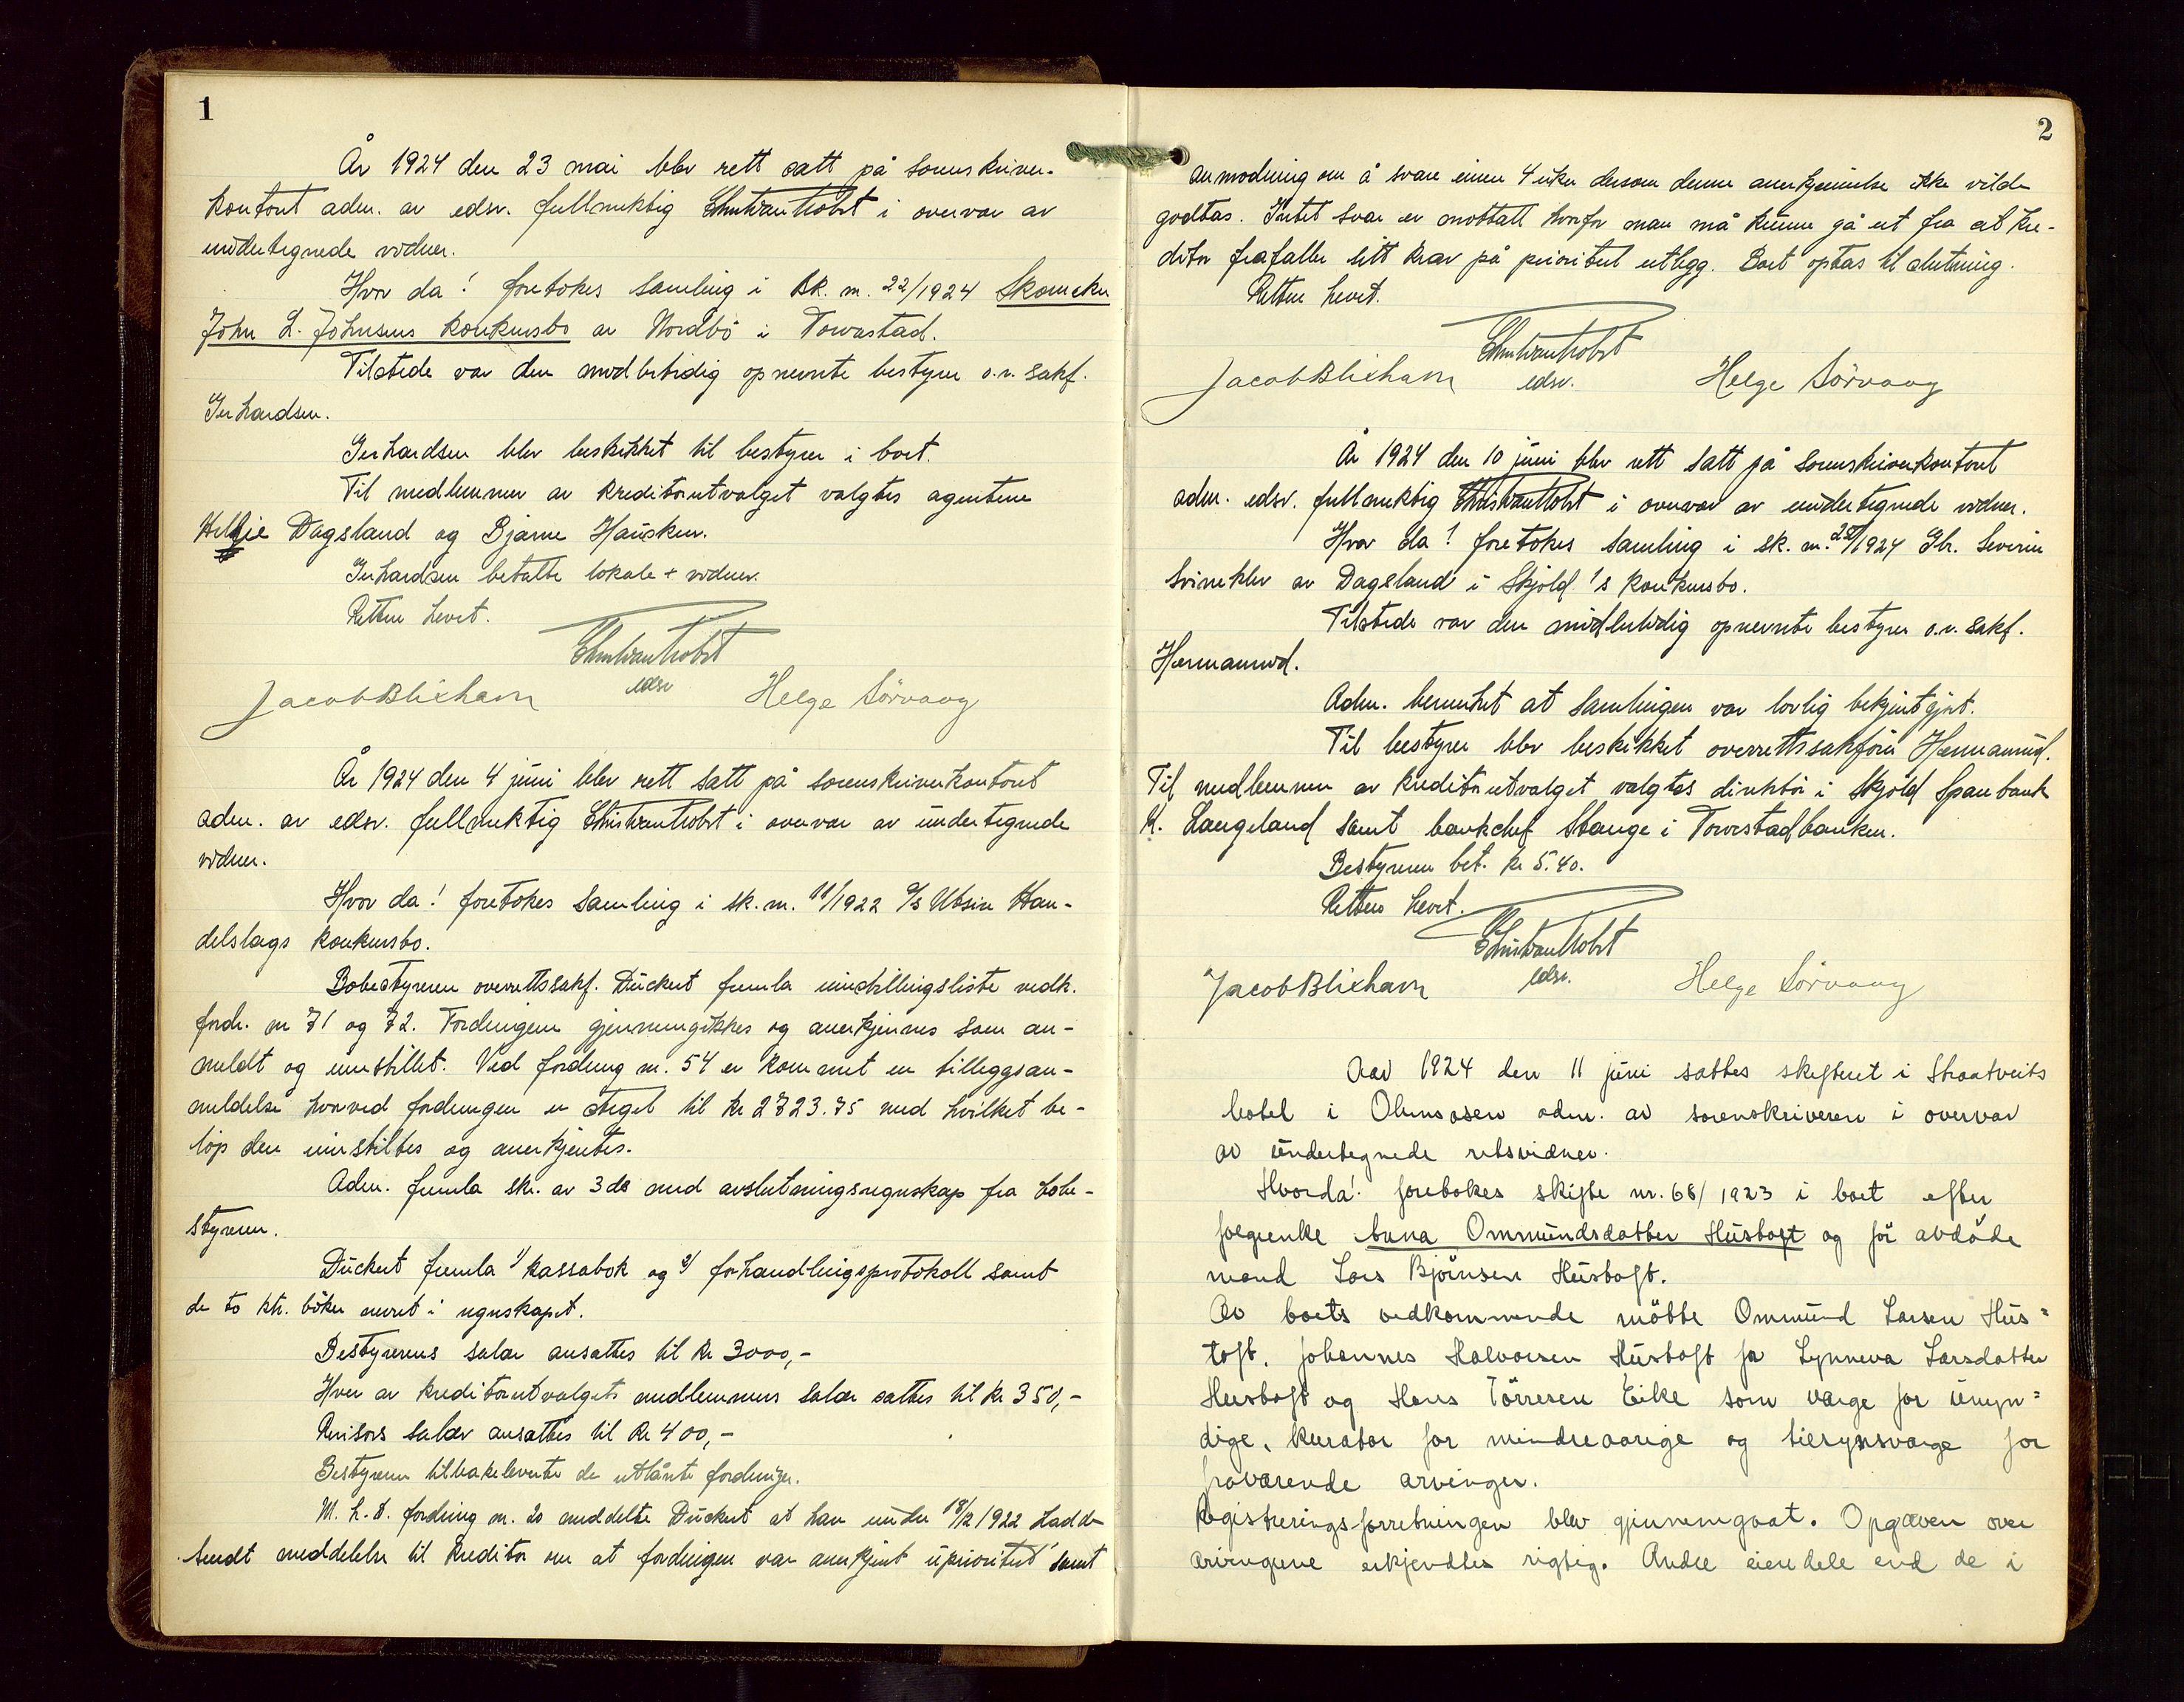 1
År 1924 den 23 mai blev rett satt på sorenskriver-
kontoret adm. av edsv. fullmektig Christian Trobst i overvær av
undertegnede vidner.
Hvor da! foretokes samling i sk. nr. 22/1924 Skomaker
John L. Johnsens konkursbo av Nordbö i Torvastad.
Tilstede var den midlertidig opnevnte bestyrer o.r. sakf.
Gerhardsen.
Gerhardsen blev beskikket til bestyrer i boet.
Til medlemmer av kreditorutvalget valgtes agentene
Dagsland og Bjarne Hausken.
Gerhardsen betalte lokale + vidner.
Retten hevet.
Christian Trobst
edsv
Jacob Blixhavn Helge Sörvaag
År 1924 den 4 juni blev rett satt på sorenskriverkontoret
adm. av edsv. fullmektig Christian Trobst i overvær av undertegnede
vidner.
Hvor da! foretokes samling i sk. nr. 11/1922 A/S Utsira Han-
delslags konkursbo.
Bobestyreren overrettssakf. Dückert fremla innstillingsliste vedk.
fordr. nr 71 og 72. Fordringene gjennemgikkes og anerkjennes som an-
meldt og innstillet. Ved fordring nr. 54 er kommet en tilleggsan-
meldelse hvorved fordringen er steget til kr 2723.75 med hvilket be-
löp den innstilltes og anerkjentes.
Adm. fremla skr. av 3 ds med avslutningsregnskap fra bobe-
styreren.
Dückert fremla 1/ kassabok og 2/ forhandlingsprotokoll samt
de to ktr. böker nevnt i regnskapet.
Bestyrerens salær ansattes til kr 3000,-
Hver av kreditorutvalgets medlemmers salær sattes til kr 350,-
Revisors salær ansattes til kr 400,-
Bestyreren tilbakeleverte de utlånte fordringer.
M. h. t. fordring nr. 20 meddelte Dückert at han under 18/2 1922 hadde
sendt meddelelse til kreditor om at fordringen var anerkjent uprioritert samt
2
anmodning om å svare innen 4 uker dersom denne anerkjennelse ikke vilde
godtas. Intet svar er mottatt hvorfor man må kunne gå ut fra at kre-
ditor frafaller sitt krav på prioritert utlegg. Boet optas til slutning.
Retten hevet.
Christian Trobst
Jacob Blixhavn edsv. Helge Sörvaag
År 1924 den 10 juni blev rett satt på sorenskriverkontoret
adm. edsv. fullmektig Christian Trobst i overvær av undertegnede vidner.
Hvor da! foretokes samling i sk. nr. 25/1924 Gbr. Severin
Svineklev av Dagsland i Skjold's konkursbo.
Tilstede var den midlertidig opnevnte bestyrer o.r. sakf.
Hermanrud.
Adm. bemerket at samlingen var lovlig bekjentgjort.
Til bestyrer blev beskikket overrettssakförer Hermanrud.
Til medlemmer av kreditorutvalget valgtes direktör i Skjold Sparebank
K. Langeland samt bankchef Stange i Torvestadbanken.
Bestyreren bet. kr 5.40.
Retten hevet.
Christian Trobst
Jacob Blixhavn edsv. Helge Sörvaag
Aar 1924 den 11 juni sattes skifteret i Straatveits
hotel i Ølensosen adm. av sorenskriveren i overvær
av undertegnede retsvidner.
Hvorda! foretokes skifte nr. 68/1923 i boet efter
fhv enke Anna Ommundsdatter Hustoft og för avdöde
mand Lars Bjørnsen Hustoft.
Av boets vedkommende mötte Ommund Larsen Hus=
toft, Johannes Halvorsen Hustoft for Synneva Larsdatter
Hustoft og Hans Törresen Eike som verge for umyn=
dige, kurator for mindreaarige og tilsynsverge for
fraværende arvinger.
Registreringsforretningen blev gjennemgaat. Opgaven over
arvingene erkjendtes rigtig. Andre eiendele end de i